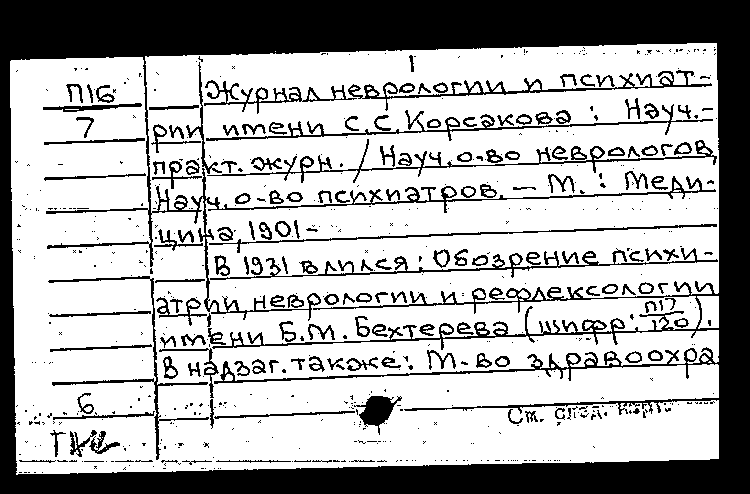 П16
7
Журнал неврологии и психиат-
рии имени С.С. Корсакова : Науч.-
практ. журн. / Науч. о-во неврологов,
Науч. о-во психиатров. — М. : Меди-
цина, 1901 -
В 1931 влился : Обозрение психи-
атрии, неврологии и рефлексологии
имени Б.М. Бехтерева (шифр: П17/120).
В надзаг. также: М-во здравоохра
6
См. след. карт.